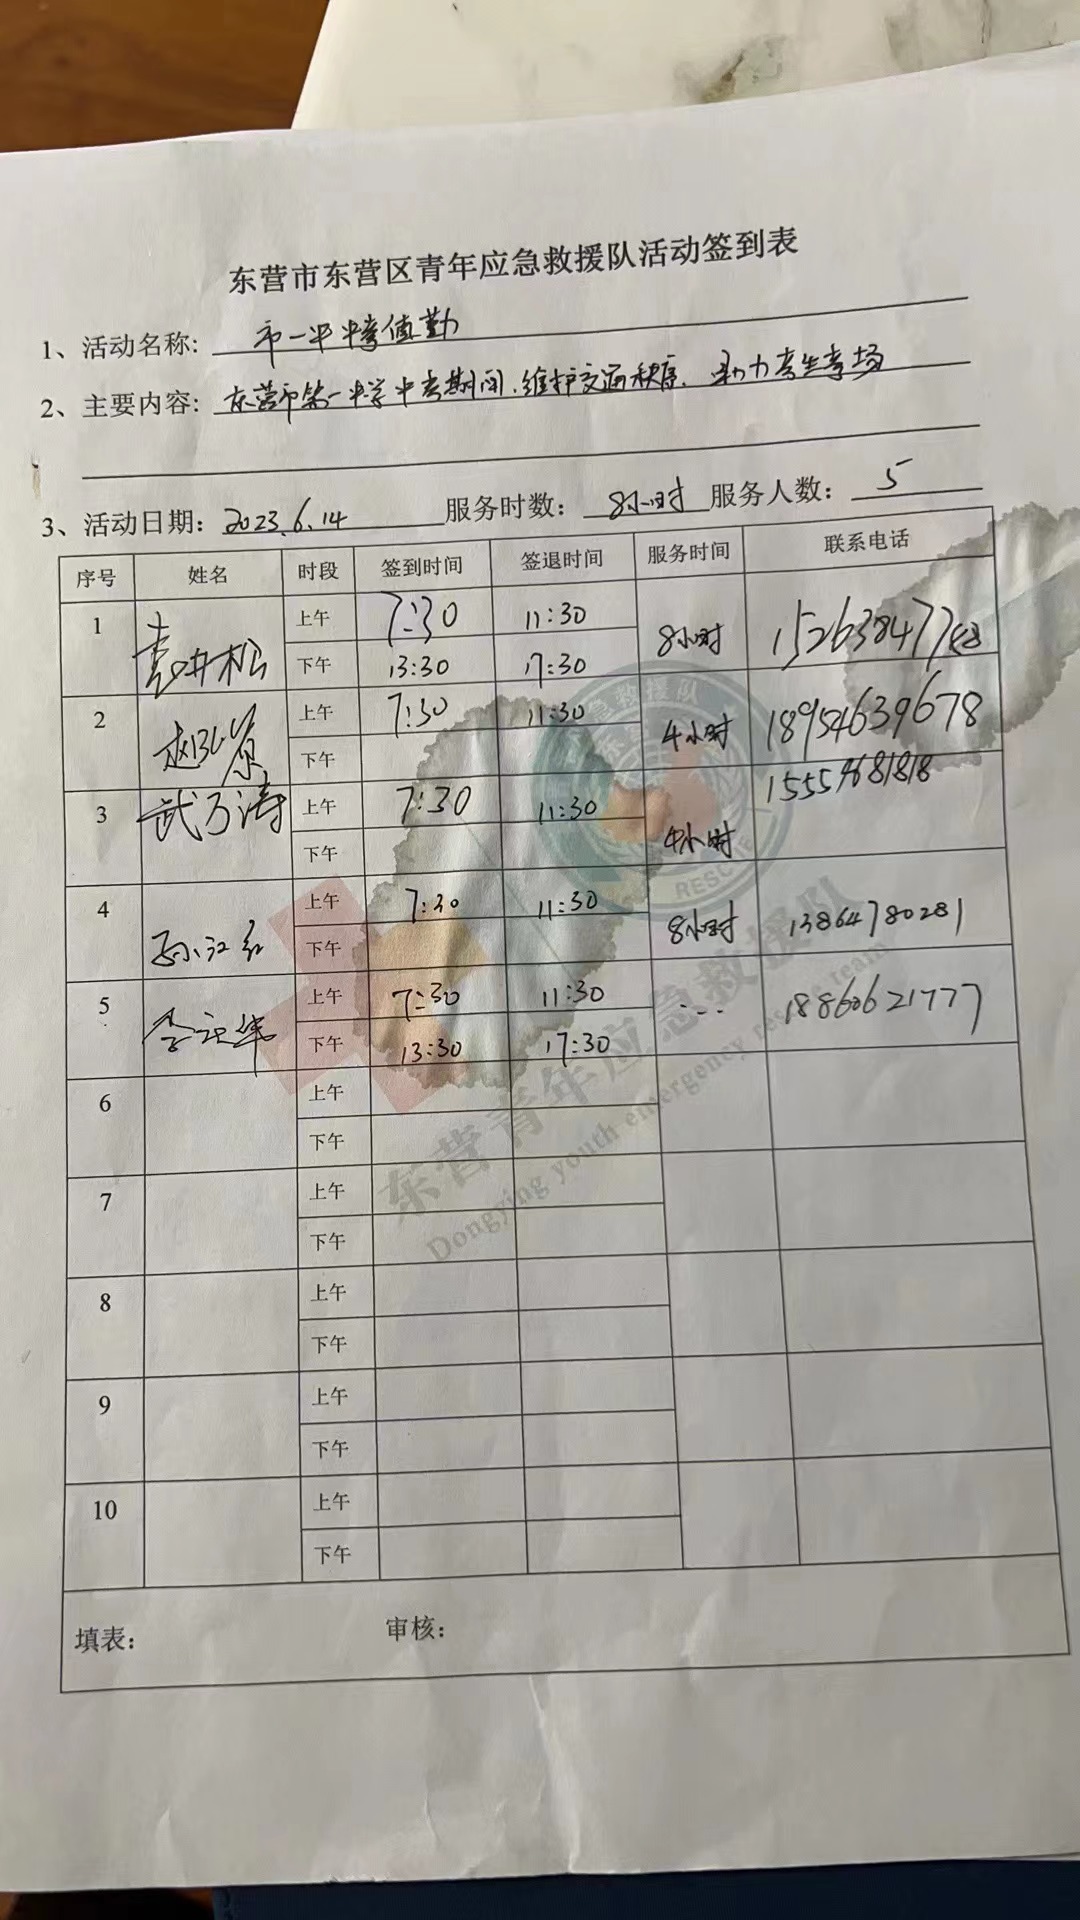 东营市东营区青年应急救援队活动签到表
1、活动名称: 市一中中考值勤
2、主要内容: 东营市第一中学中考期间.维护交通秩序. 助力考生考场
3、活动日期: 2023.6.14 服务时数: 8小时 服务人数: 5
序号 姓名 时段 签到时间 签退时间 服务时间 联系电话
1 上午 7:30 11:30
袁井松 下午 13:30 17:30 8小时
2 上午 7:30 11:30 18954639678
下午 4小时
3 武乃涛 上午 7:30 11:30 15554681818
下午 4小时
4 上午 7:30 11:30
孙江红 下午 8小时 13864780281
5 上午 7:30 11:30 18860621777
下午 13:30 17:30
6 上午
下午
7 上午
下午
8 上午
下午
9 上午
下午
10 上午
下午
填表: 审核:
东营青年应急救援队
Dongying youth emergency rescue team